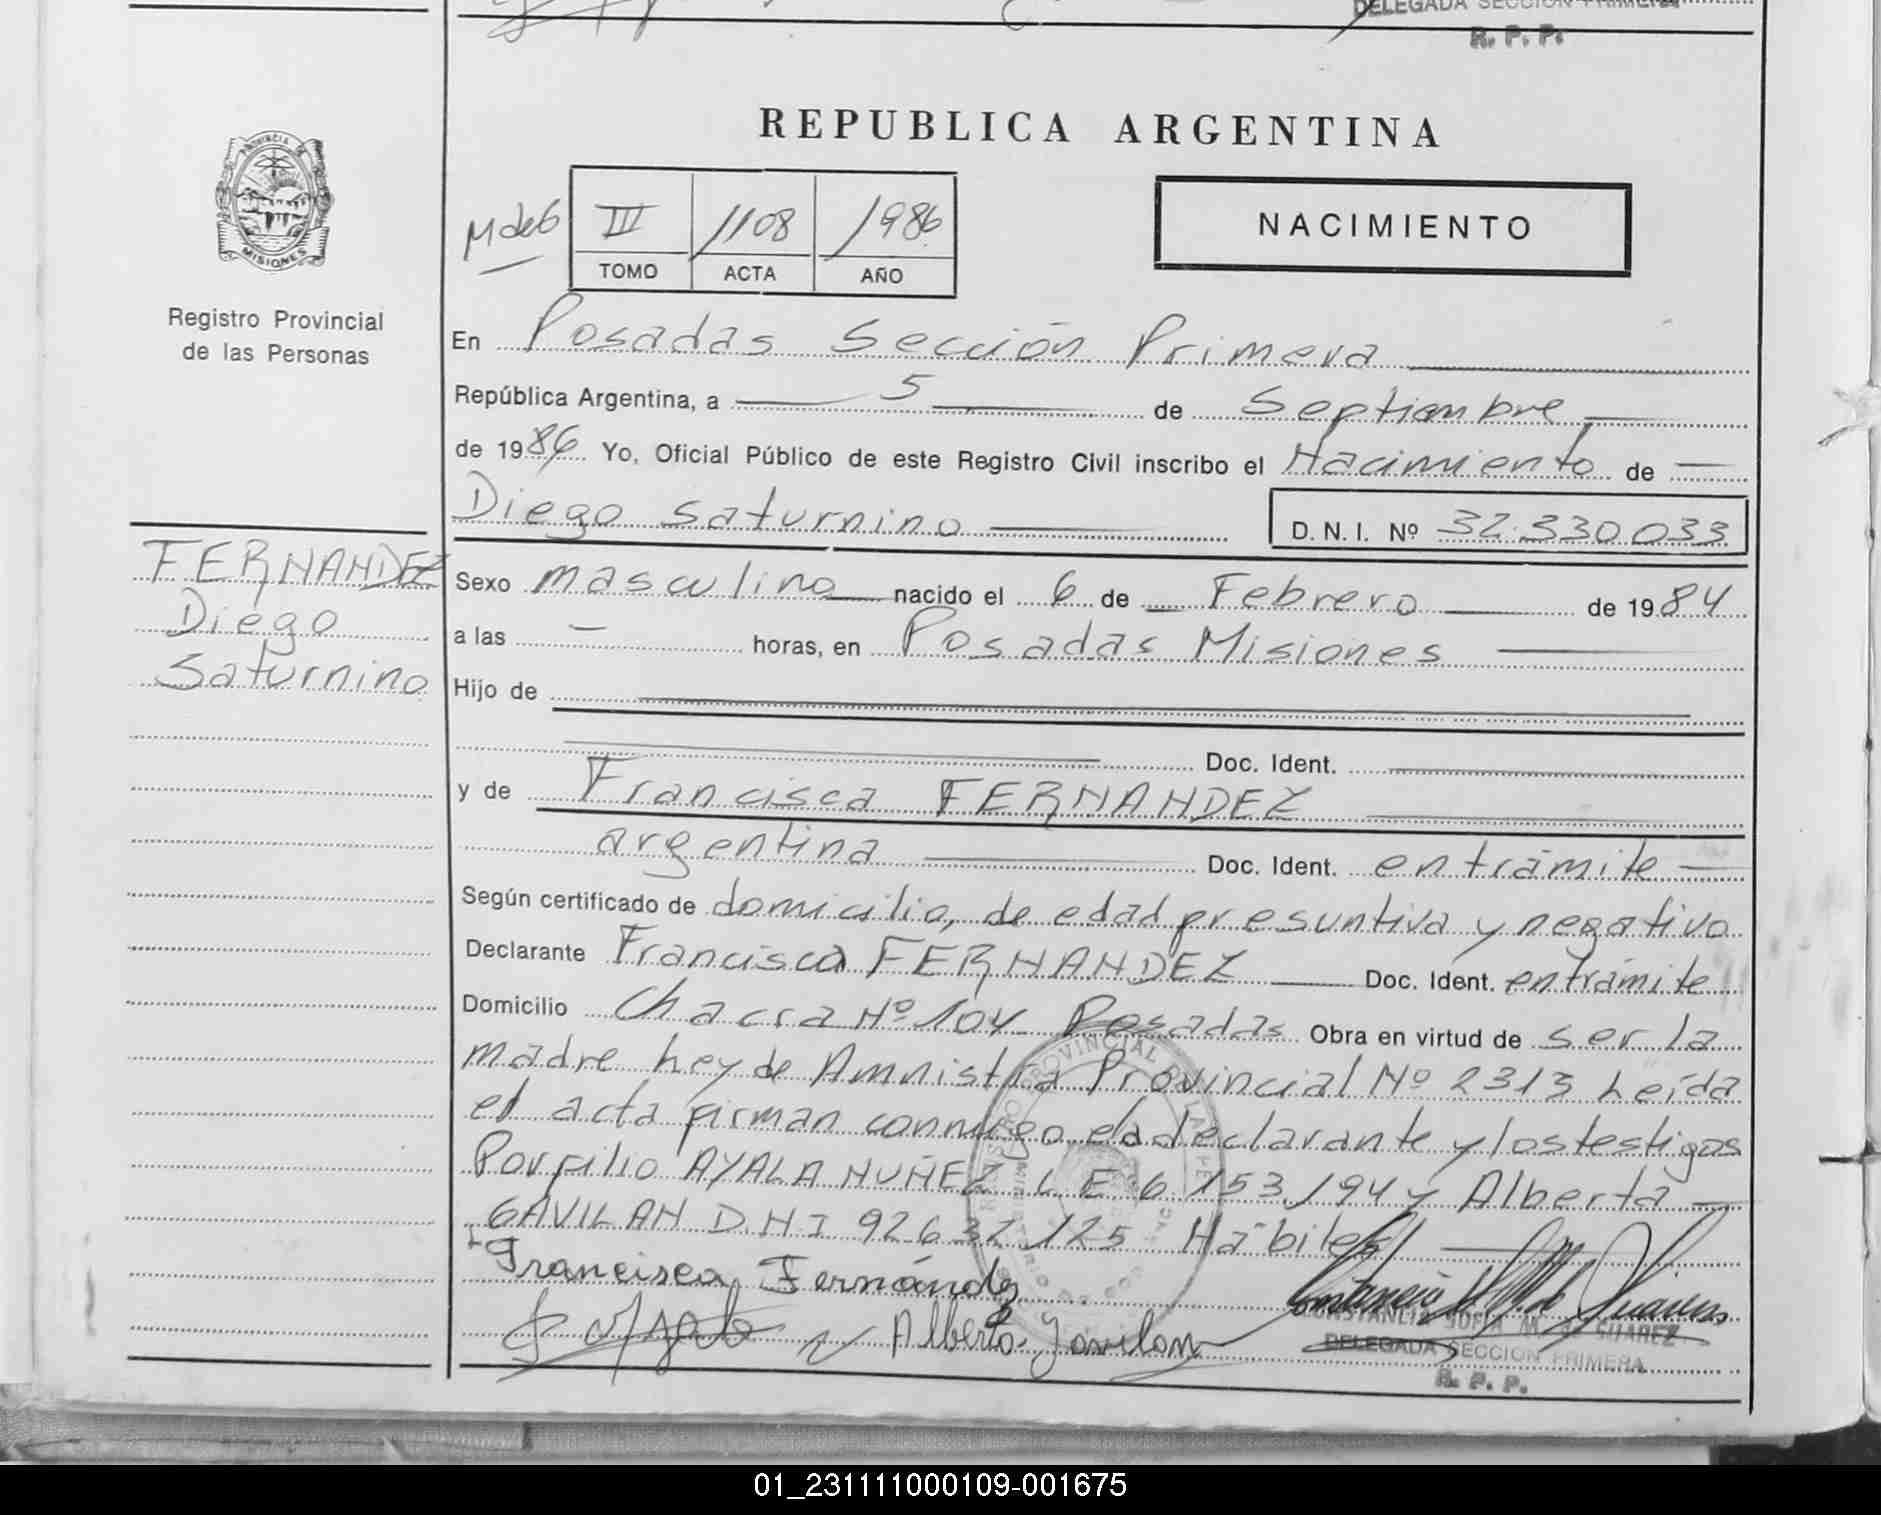 DELEGADA SECCION PRIMERA
R. P. P.
REPUBLICA ARGENTINA
PROVINCIA DE
MISIONES
Registro Provincial
de las Personas
M de 6
III 1108 1986
TOMO ACTA AÑO
NACIMIENTO
En Posadas Sección Primera
República Argentina, a 5 de Septiembre
de 1986 Yo, Oficial Público de este Registro Civil inscribo el Nacimiento de
Diego Saturnino D. N. I. Nº 32.330.033
FERNANDEZ
Diego
Saturnino
Sexo masculino nacido el 6 de Febrero de 1984
a las — horas, en Posadas Misiones
Hijo de
Doc. Ident.
y de Francisca FERNANDEZ
argentina Doc. Ident. en trámite
Según certificado de domicilio, de edad presuntiva y negativo
Declarante Francisca FERNANDEZ Doc. Ident. en trámite
Domicilio Chacra Nº 104 Posadas Obra en virtud de ser la
madre ley de Amnistia Provincial Nº 2313 Leída
el acta firman conmigo la declarante y los testigos
Porfilio AYALA NUÑEZ L E 6 153 194 y Alberta
GAVILAN D.N.I 92632125 Hábiles
Francisca Fernández
Alberta Gavilan
CONSTANCIA SOFIA M. de SUAREZ
DELEGADA SECCION PRIMERA
R. P. P.
01_231111000109-001675